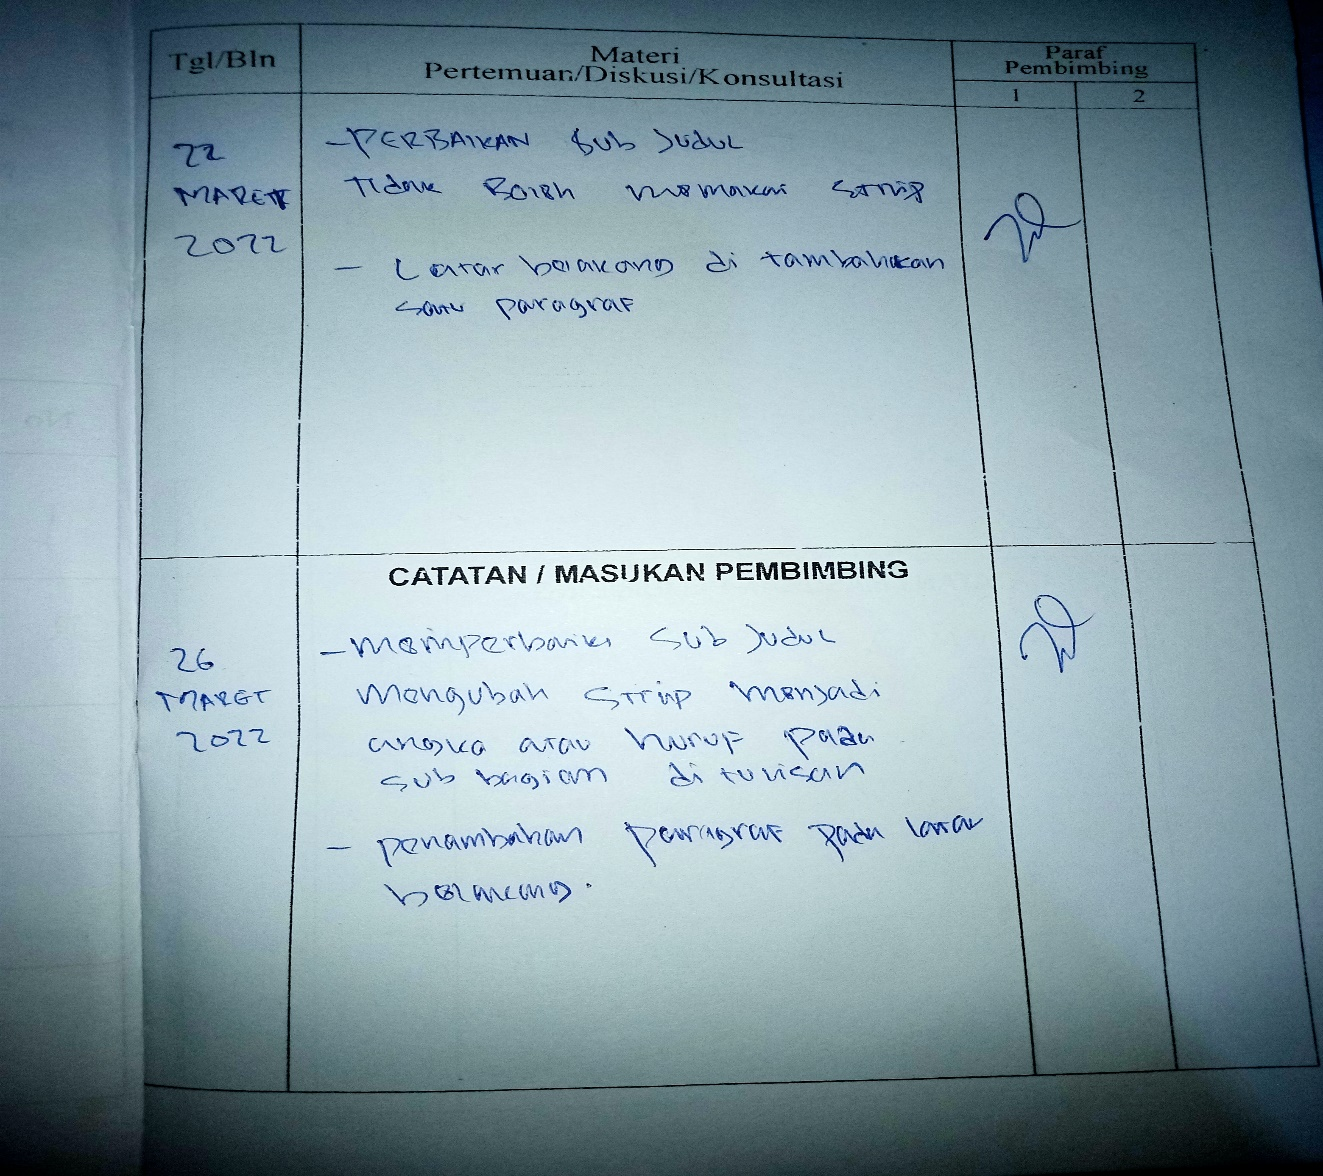 Tgl/Bln
Materi
Pertemuan/Diskusi/Konsultasi
Paraf
Pembimbing
1 2
22
MARET
2022
- PERBAIKAN Sub Judul
Tidak Boleh memakai strip
- Latar belakang di tambahkan
satu paragraf
CATATAN / MASUKAN PEMBIMBING
26
MARET
2022
- memperbaiki Sub Judul
mengubah strip menjadi
angka atau huruf pada
sub bagian di tulisan
- penambahan paragraf pada latar
belakang.